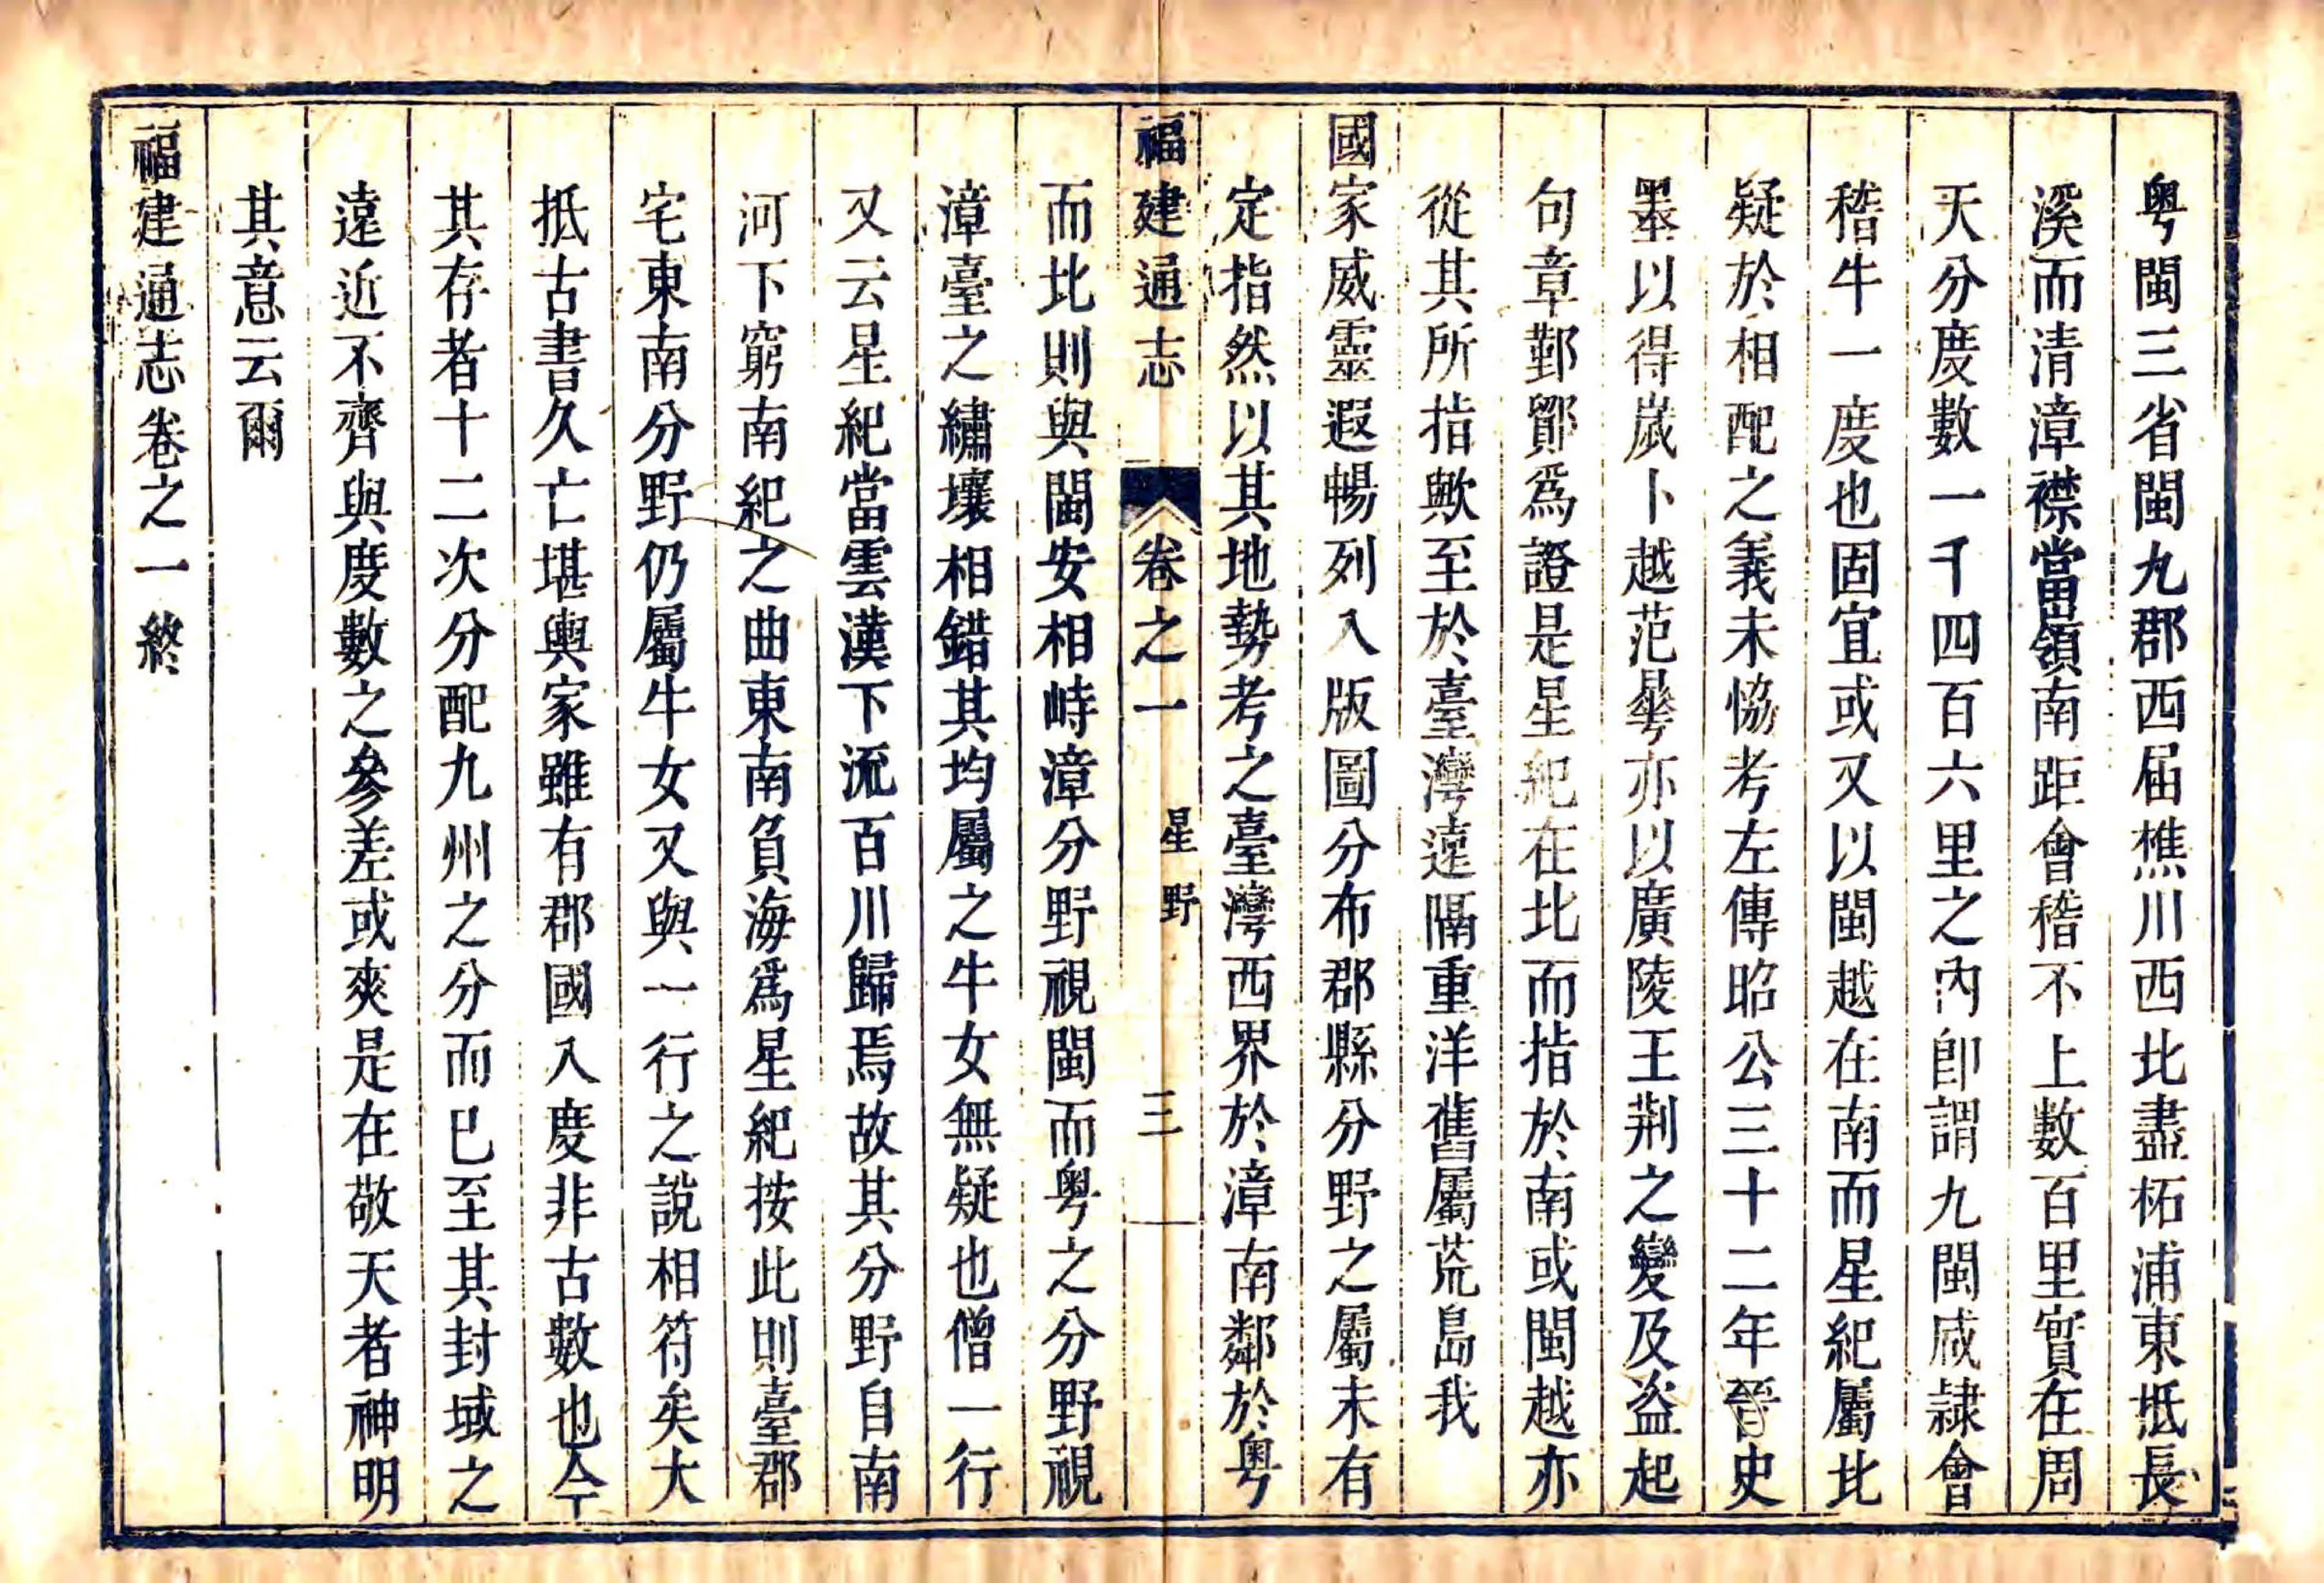 粤閩三省閩九郡西届樵川西北盡柘浦東抵長
溪而清漳襟當嶺南距會稽不上數百里實在周
天分度數一千四百六里之內卽謂九閩咸隷會
稽牛一度也固宜或又以閩越在南而星紀屬北
疑於相配之義未恊考左傳昭公三十二年晉史
墨以得嵗卜越范蠡亦以廣陵王荆之變及盗起
句章鄞鄮爲證是星紀在北而指於南或閩越亦
從其所指歟至於臺灣遠隔重洋舊屬荒島我
國家威靈遐暢列入版圖分布郡縣分野之屬未有
定指然以其地勢考之臺灣西界於漳南鄰於粤
福建通志 卷之一 星野 三
而北則與閩安相峙漳分野視閩而粤之分野視
漳臺之繡壤相錯其均屬之牛女無疑也僧一行
又云星紀當雲漢下流百川歸焉故其分野自南
河下窮南紀之曲東南負海爲星紀按此則臺郡
宅東南分野仍屬牛女又與一行之說相符矣大
抵古書久亡堪輿家雖有郡國入度非古數也今
其存者十二次分配九州之分而已至其封域之
遠近不齊與度數之參差或爽是在敬天者神明
其意云爾
福建通志卷之一終